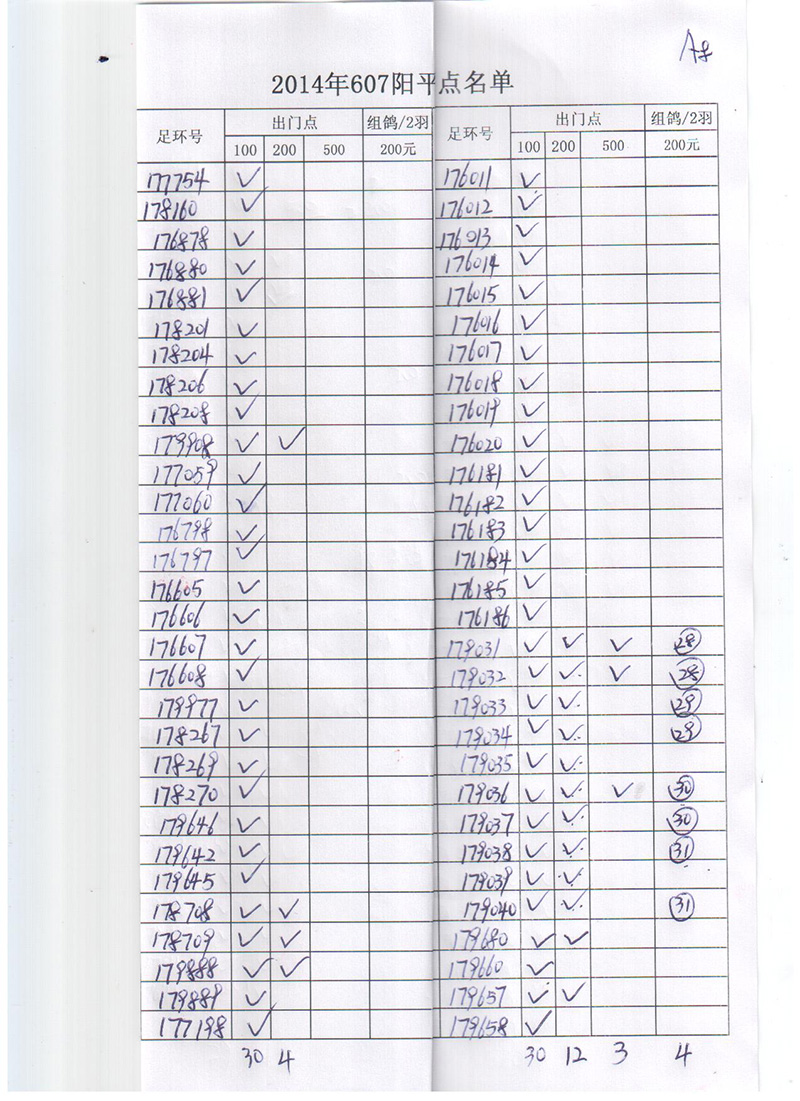 A8
2014年607阳平点名单
足环号 出门点 组鸽/2羽 足环号 出门点 组鸽/2羽
100 200 500 200元 100 200 500 200元
177754 ✓ 176011 ✓
178160 ✓ 176012 ✓
176878 ✓ 176013 ✓
176880 ✓ 176014 ✓
176881 ✓ 176015 ✓
178201 ✓ 176016 ✓
178204 ✓ 176017 ✓
178206 ✓ 176018 ✓
178208 ✓ 176019 ✓
179908 ✓ ✓ 176020 ✓
177059 ✓ 176181 ✓
177060 ✓ 176182 ✓
176798 ✓ 176183 ✓
176797 ✓ 176184 ✓
176605 ✓ 176185 ✓
176606 ✓ 176186 ✓
176607 ✓ 179031 ✓ ✓ ✓ 28
176608 ✓ 179032 ✓ ✓ ✓ 28
179977 ✓ 179033 ✓ ✓ 29
178267 ✓ 179034 ✓ ✓ 29
178269 ✓ 179035 ✓ ✓
178270 ✓ 179036 ✓ ✓ ✓ 30
179646 ✓ 179037 ✓ ✓ 30
179642 ✓ 179038 ✓ ✓ 31
179645 ✓ 179039 ✓ ✓
178708 ✓ ✓ 179040 ✓ ✓ 31
178709 ✓ ✓ 179680 ✓ ✓
179888 ✓ ✓ 179660 ✓
179889 ✓ 179657 ✓ ✓
177198 ✓ 179658 ✓
30 4 30 12 3 4